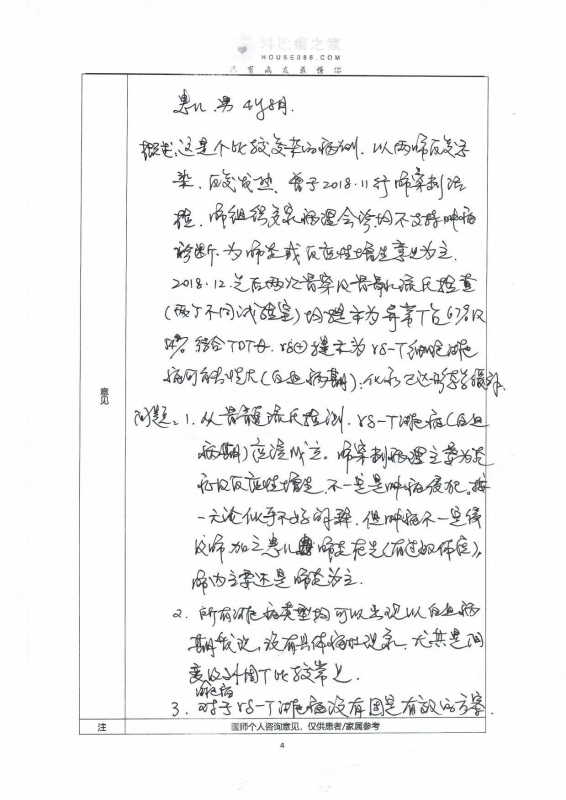 淋巴瘤之家
HOUSE086.COM
只有病友最懂你
患儿、男 4y8月.
概述:这是个比较复杂的病例. 以两肺反复感
染, 反复发热. 曾于2018.11行肺穿刺活
检, 肺组织多家病理会诊均不支持肿瘤
诊断. 为肺炎或反应性增生病变为主.
2018.12之后两次骨穿及骨髓流式检查
(两个不同试验室)均提示为异常T占67%及
结合TDT 提示为rs-T细胞淋巴
瘤可能性大(白血病期).
问题:1. 从骨髓流式检测, rs-T淋巴瘤(白血
病期)应该成立。肺穿刺病理主要为炎
症及反应性增生, 不一定是肿瘤侵犯。按
一元论似乎不好解释, 但肿瘤不一定侵
及肺 加之患儿 肺炎在先(有过敏体质),
肺内主要还是肺炎为主.
2. 所有淋巴瘤类型均可以出现以白血病
期发现, 没有具体瘤灶现象, 尤其是
及外周T比较常见.
淋巴瘤
3. 对于rs-T淋巴瘤没有固定有效的方案.
意见
注
医师个人咨询意见，仅供患者/家属参考
4